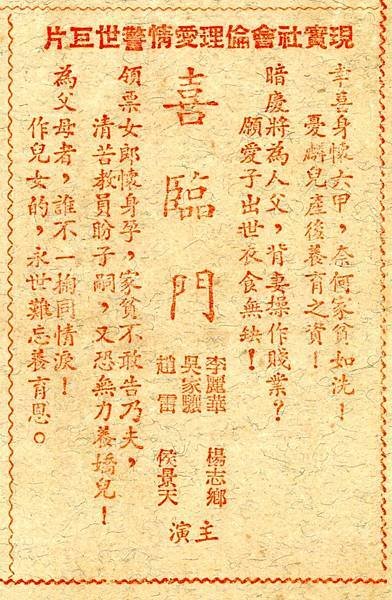 現實社會倫理愛情警世巨片
幸喜身懷六甲，奈何家貧如洗！
憂麟兒產後養育之資！
暗慶將為人父，背妻操作賤業？
願愛子出世衣食無缺！
喜臨門
李麗華 楊志卿
吳家驤
趙雷 侯景天
主演
領票女郎懷身孕，家貧不敢告乃夫，
清苦教員盼子嗣，又恐無力養嬌兒！
為父母者，誰不一掬同情淚！
作兒女的，永世難忘養育恩。